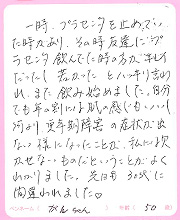 一時、プラセンタを止めてい
た時があり、その時友達に「プ
ラセンタ飲んでた時の方がキレイ
だったし若かった」とハッキリ言わ
れ、また飲み始めました。自分
でも年の割には肌の感じもいいし
何より更年期障害の症状が出
ない様になったことが、私には欠
かせないものだということがよくわ
かりました。先日も30代に
間違われました♡
ペンネーム(がんchan) 年齢(50)